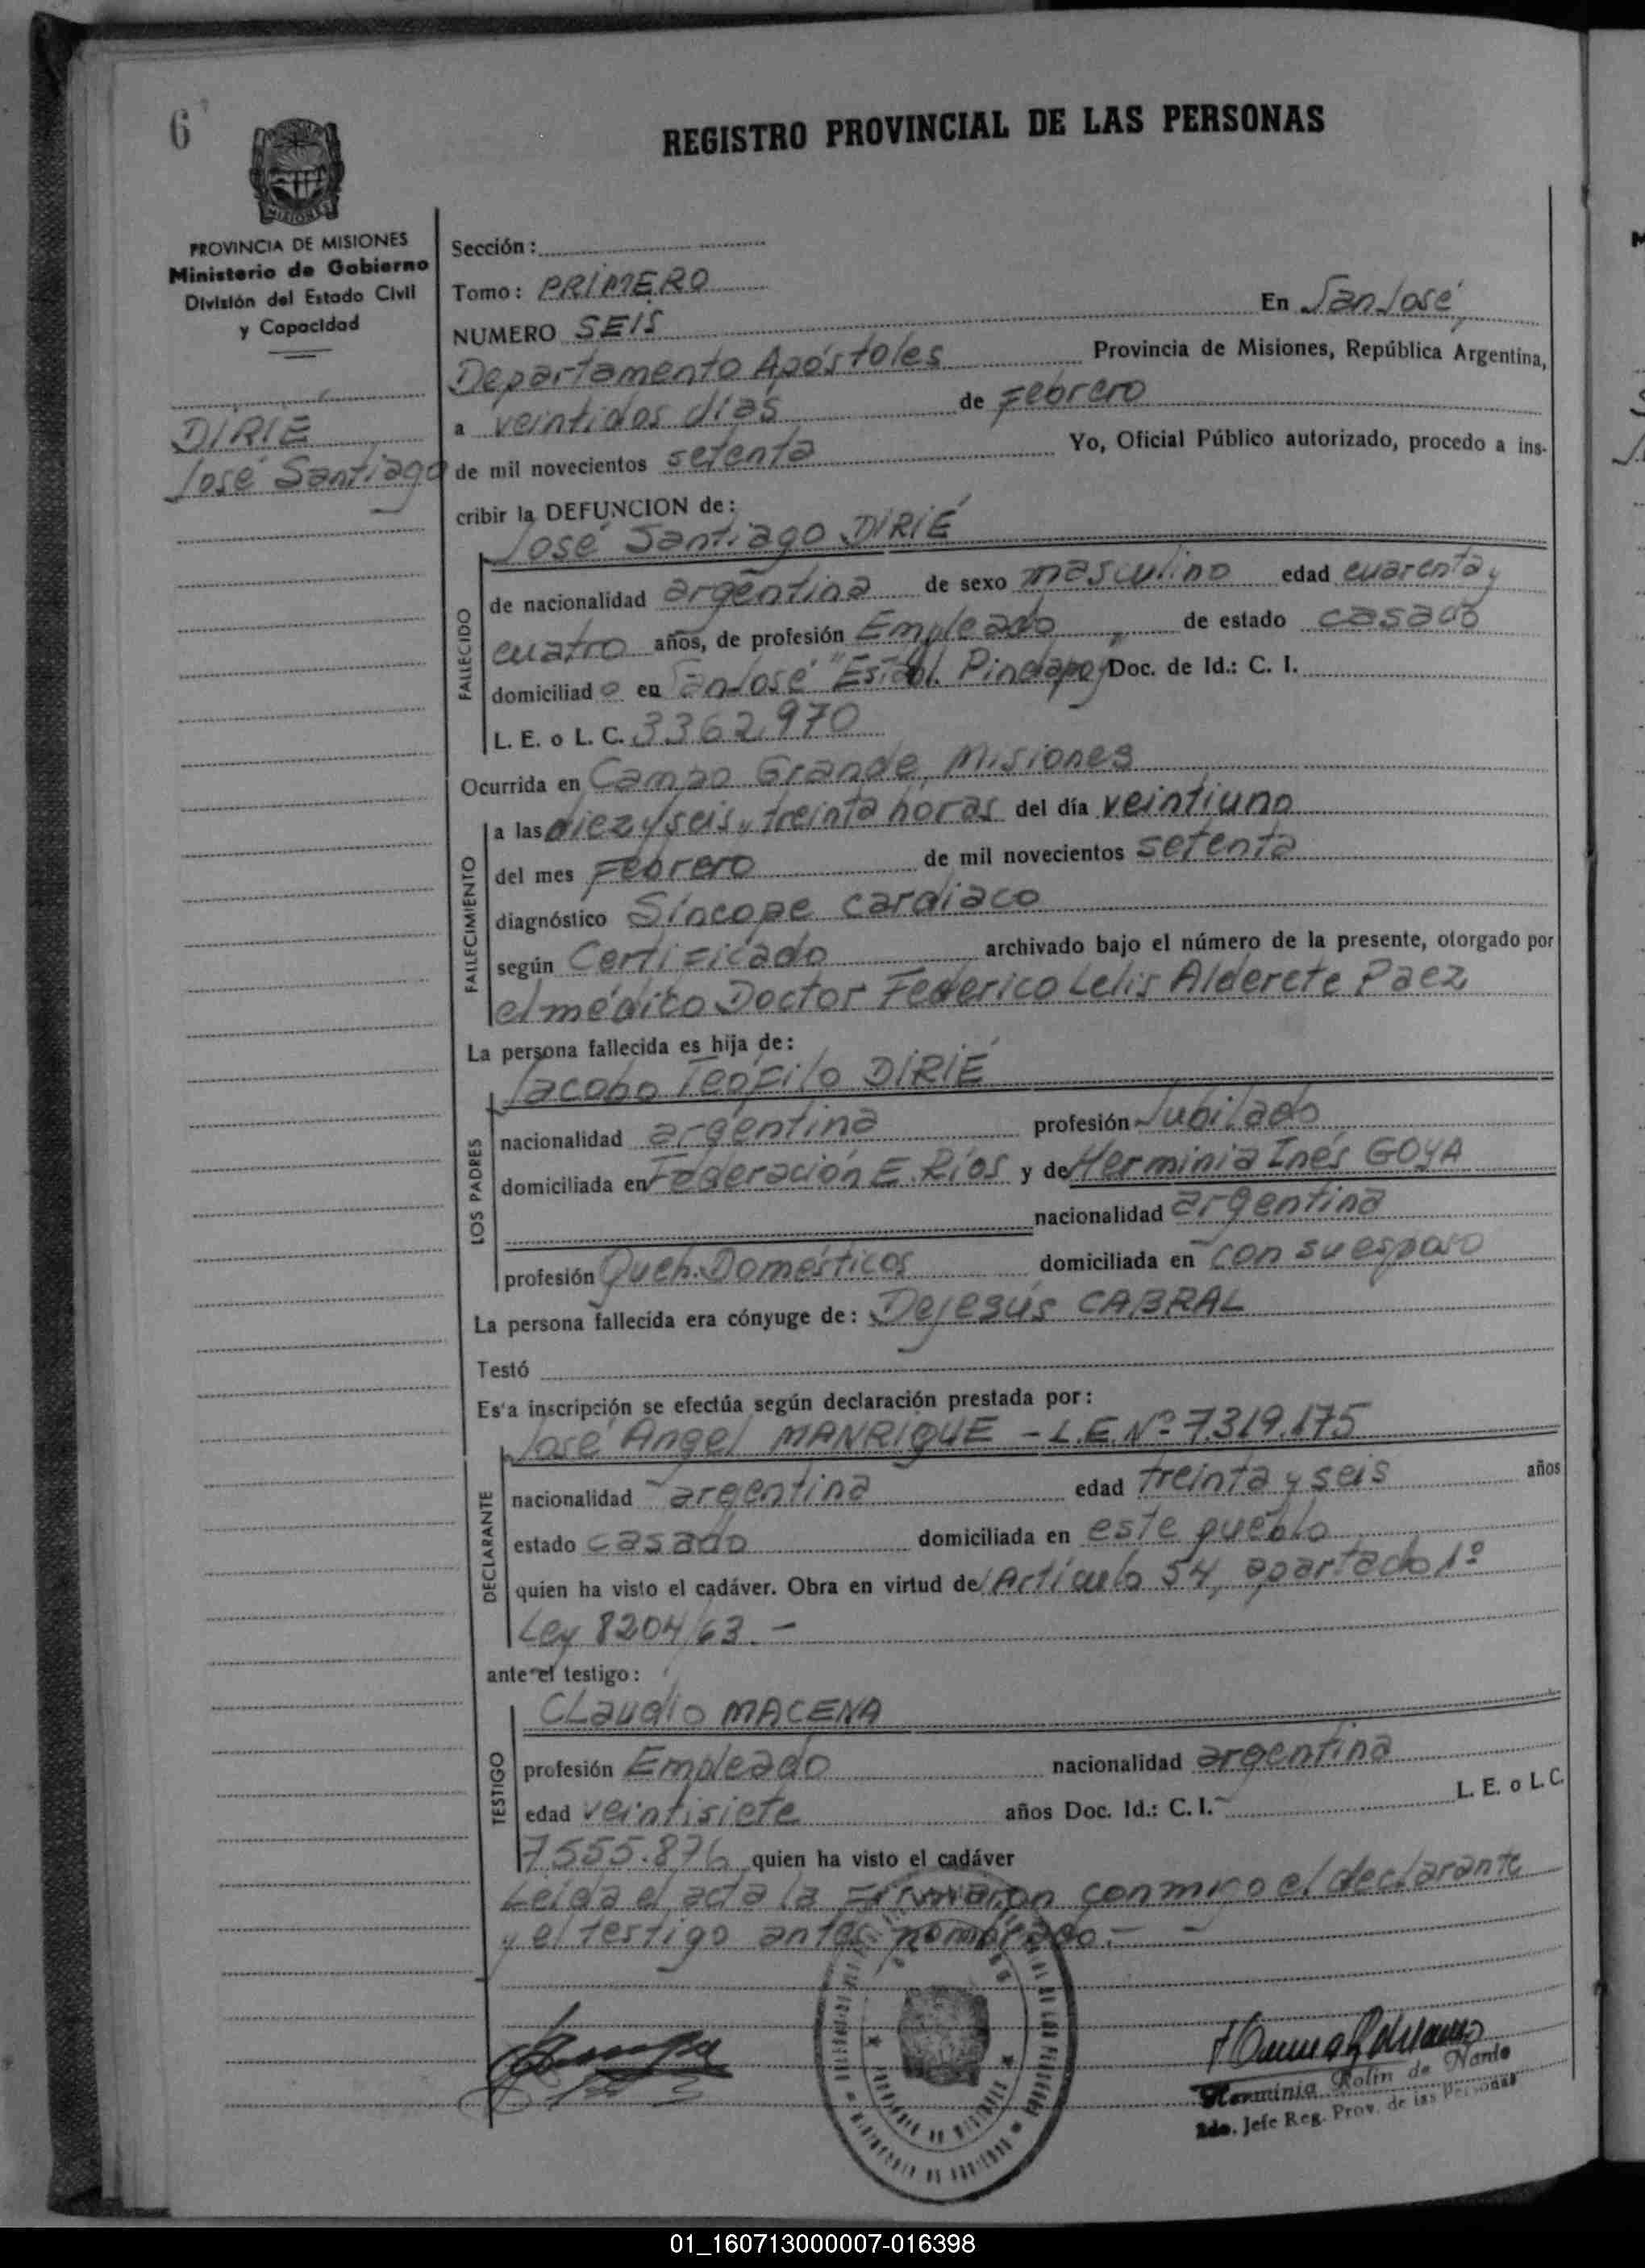 6
REGISTRO PROVINCIAL DE LAS PERSONAS
MISIONES
PROVINCIA DE MISIONES
Ministerio de Gobierno
División del Estado Civil
y Capacidad
DIRIÉ
José Santiago
Sección:
Tomo: PRIMERO
NUMERO SEIS En San José,
Departamento Apóstoles Provincia de Misiones, República Argentina,
a veintidos días de Febrero
de mil novecientos setenta Yo, Oficial Público autorizado, procedo a ins-
cribir la DEFUNCION de:
José Santiago DIRIÉ
FALLECIDO
de nacionalidad argentina de sexo masculino edad cuarenta y
cuatro años, de profesión Empleado de estado casado
domiciliado en San José "Establ. Pindapoy" Doc. de Id.: C. I.
L. E. o L. C. 3362.970
Ocurrida en Campo Grande, Misiones
FALLECIMIENTO
a las diez y seis y treinta horas del día veintiuno
del mes Febrero de mil novecientos setenta
diagnóstico Síncope cardiaco
según Certificado archivado bajo el número de la presente, otorgado por
el médico Doctor Federico Lelis Alderete Paez
La persona fallecida es hija de:
Jacobo Teófilo DIRIÉ
LOS PADRES
nacionalidad argentina profesión Jubilado
domiciliada en Federación E. Ríos y de Herminia Inés GOYA
nacionalidad argentina
profesión Queh. Domésticos domiciliada en con su esposo
La persona fallecida era cónyuge de: Dejesús CABRAL
Testó
Esta inscripción se efectúa según declaración prestada por:
José Angel MANRIQUE - L.E. Nº 7.319.175
DECLARANTE
nacionalidad argentina edad treinta y seis años
estado casado domiciliada en este pueblo
quien ha visto el cadáver. Obra en virtud del Artículo 54, apartado 1º
Ley 8204/63.-
ante el testigo:
Claudio MACENA
TESTIGO
profesión Empleado nacionalidad argentina
edad veintisiete años Doc. Id.: C. I. L. E. o L. C.
7.555.876 quien ha visto el cadáver
Leída el acta la Firmaron conmigo el declarante
y el testigo antes nombrado.-
Herminia Rolin de Nardo
Jefe Reg. Prov. de las Personas
01_160713000007-016398